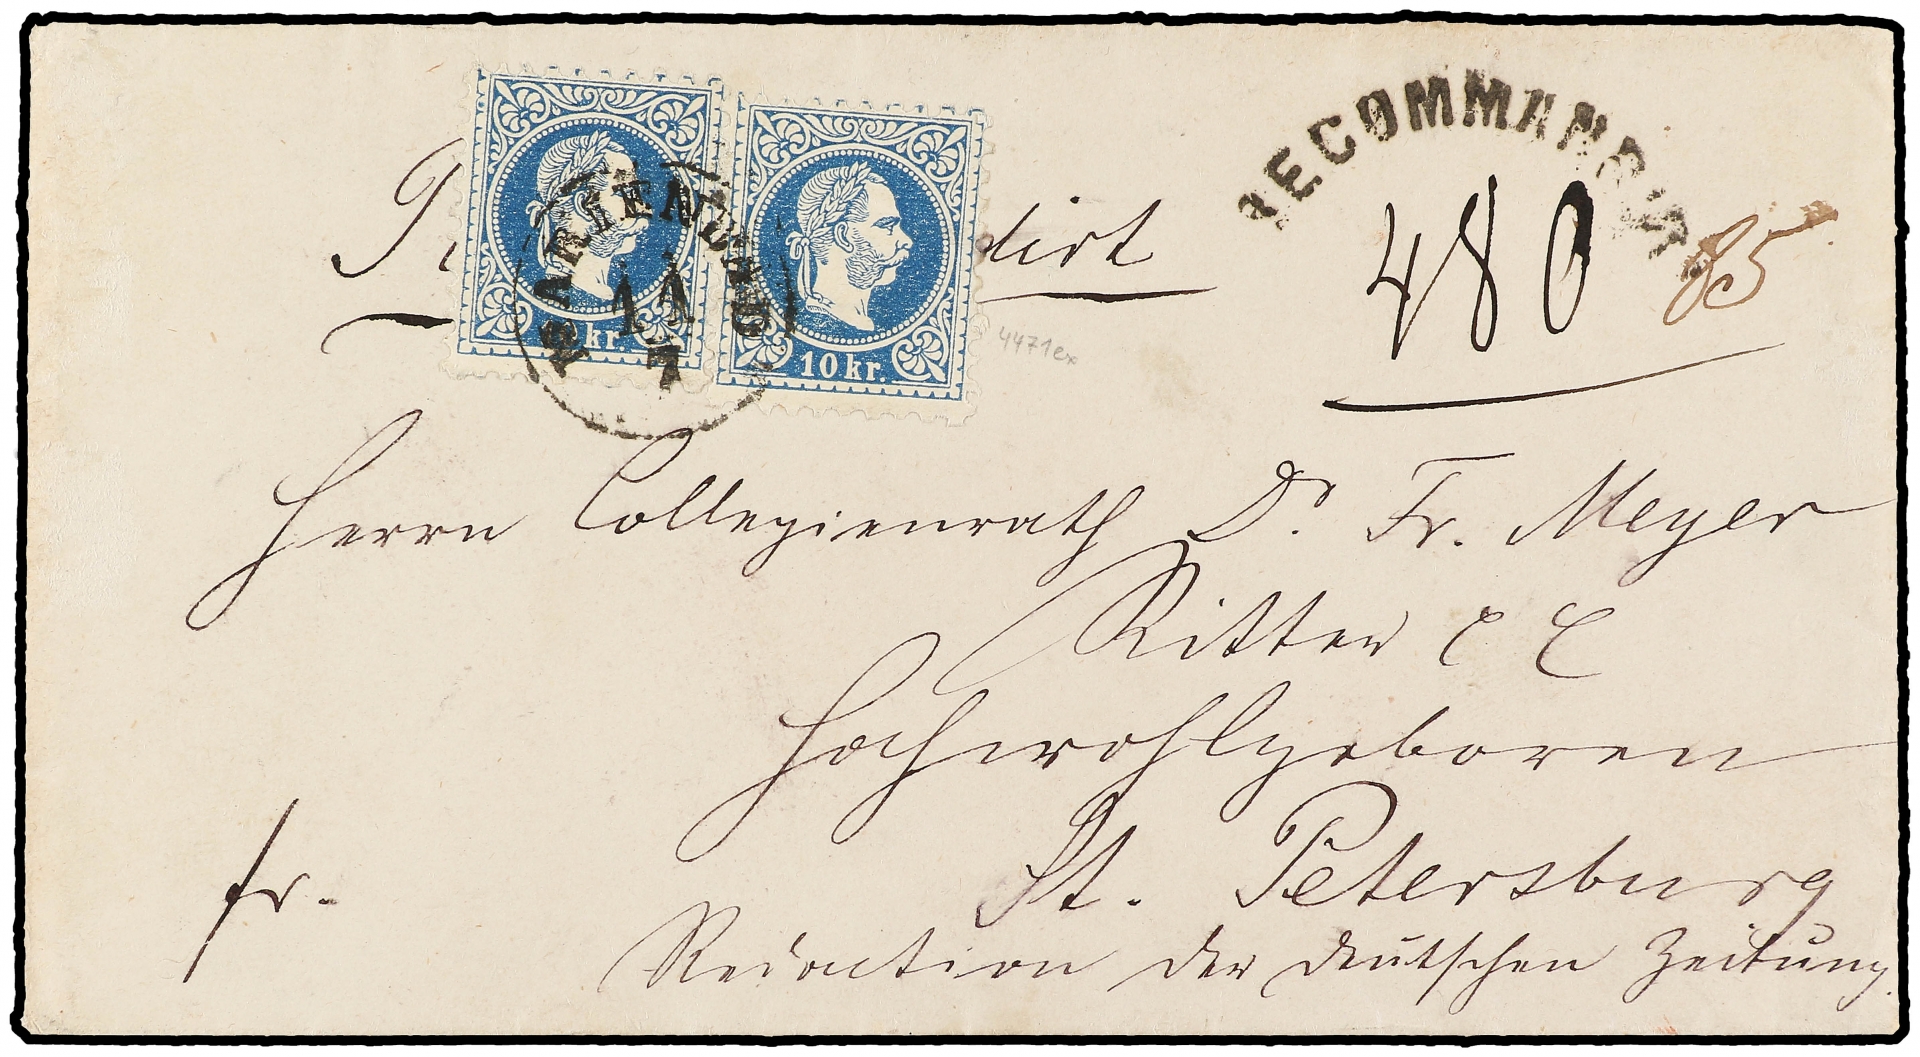 RECOMMANDIRT
480
85
MARIENBAD
11
7
kr.
10 kr.
4471ex
Herrn Collegienrath Dr. Fr. Meyer
Ritter
Hochwohlgeboren
fr.
St. Petersburg
Redaction der deutschen Zeitung.